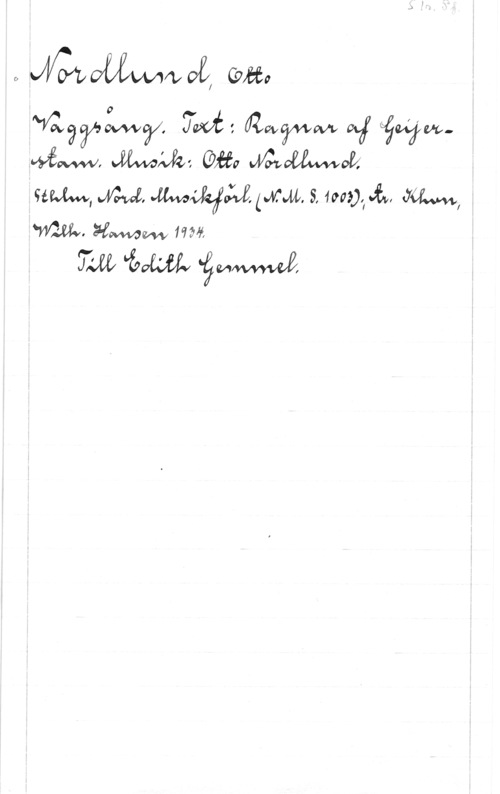 S ln. 8f.
Nordlund, Otto
Vaggsång. Text: Ragnar af Geijer-
stam. Musik: Otto Nordlund.
Sthlm, Nord. Musikförl. (N.M.S. 1003); tr. Khvn,
Wilh. Hansen 1934.
Till Edith Gemmel.